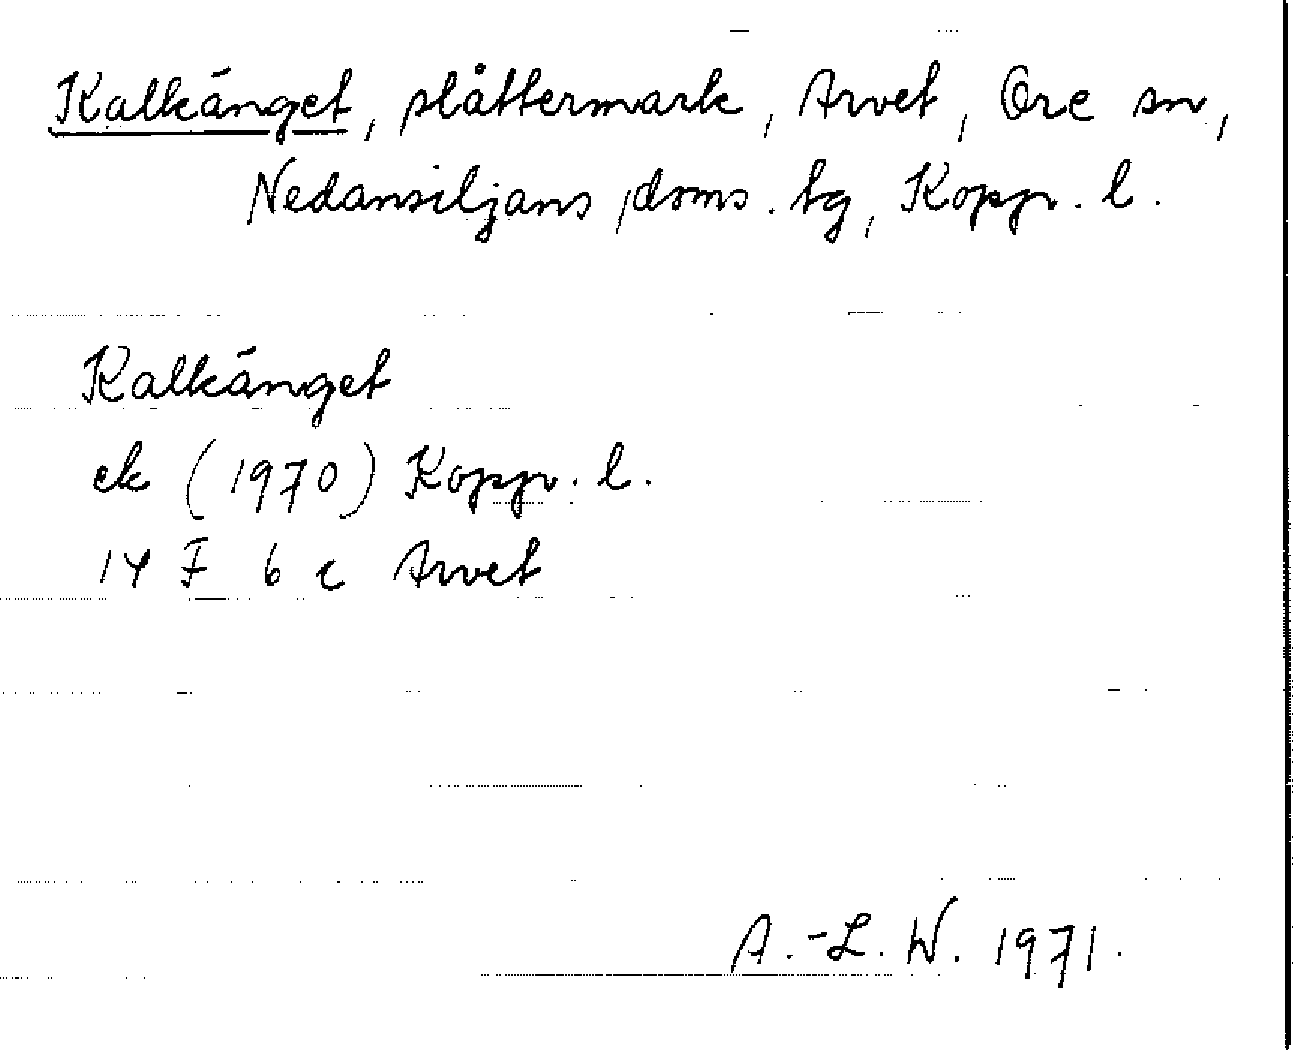 Kalkänget, slåttermark, Arvet, Ore sn,
Nedansiljans doms. tg, Koppr. l.
Kalkänget
ek (1970) Koppr. l.
14 F 6 c Arvet
A.-L. W. 1971.